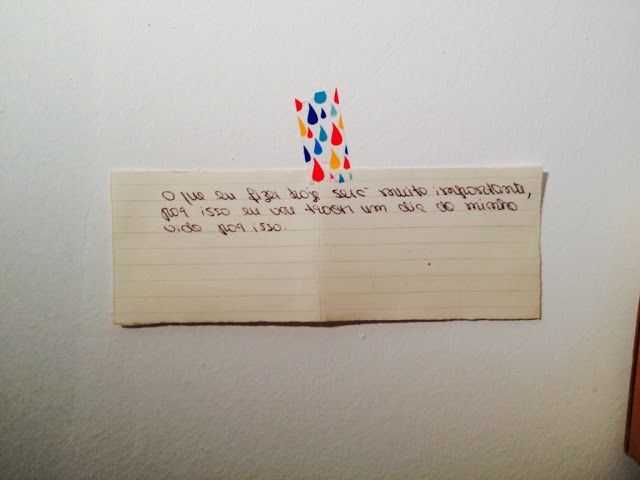 O que eu fizer hoje será muito importante,
por isso eu vou trocar um dia da minha
vida por isso.